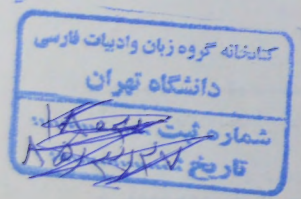 کتابخانه گروه زبان وادبیات فارسی
دانشگاه تهران
شماره ثبت
تاریخ